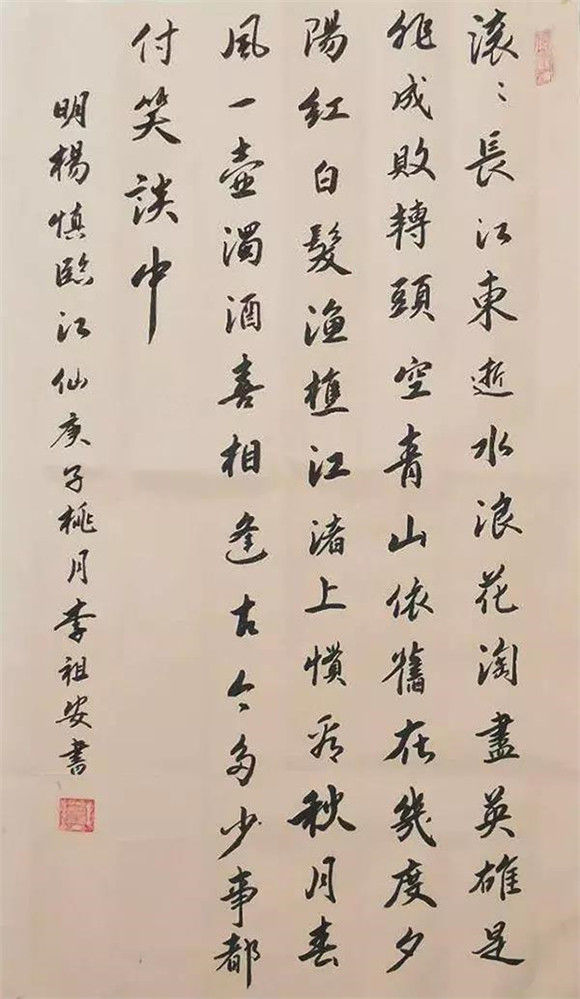 滚〻長江東逝水浪花淘盡英雄是
非成敗轉頭空青山依舊在幾度夕
陽紅白髮渔樵江渚上慣看秋月春
風一壺濁酒喜相逢古今多少事都
付笑談中
明楊慎臨江仙庚子桃月李祖安書